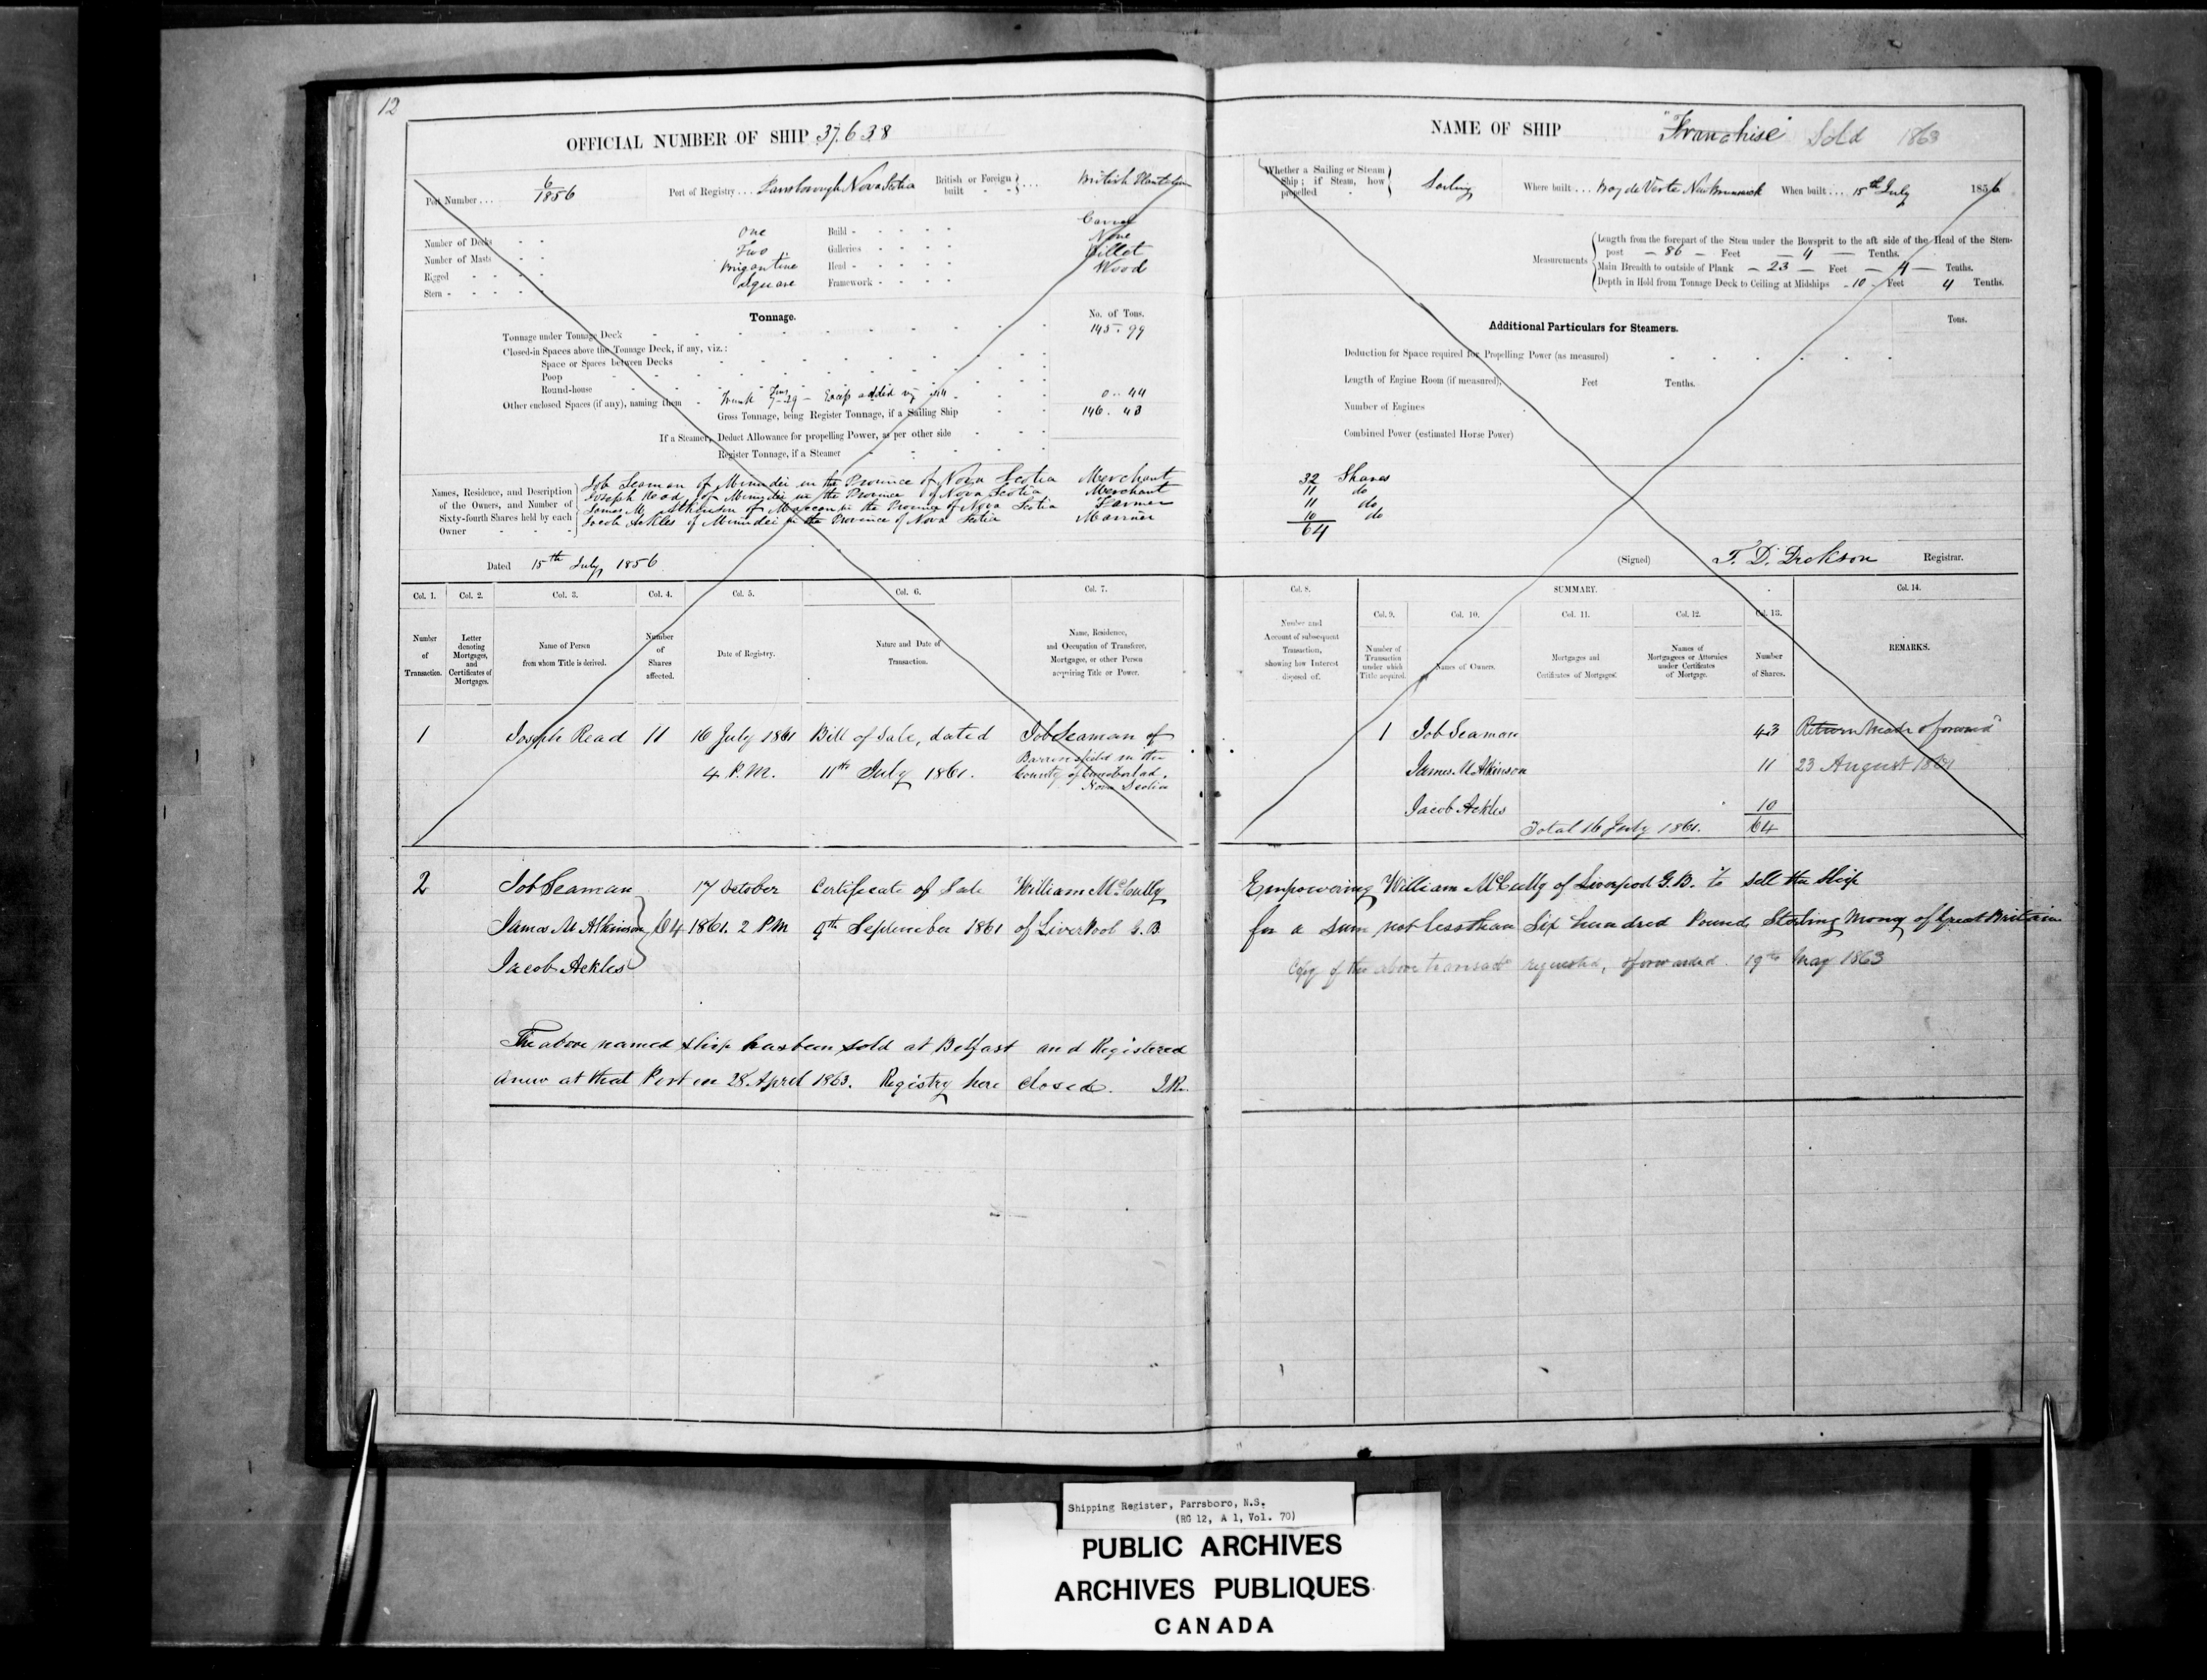 12
OFFICIAL NUMBER OF SHIP 37.638
Port Number ... 6/1856 Port of Registry ... Parrsborough Nova Scotia British or Foreign built ... British Plantation
Number of Decks One Build Carvel
Number of Masts Two Galleries None
Rigged Brigantine Head Billet
Stern Square Framework Wood
Tonnage. No. of Tons.
Tonnage under Tonnage Deck 145.99
Closed-in Spaces above the Tonnage Deck, if any, viz.:
Space or Spaces between Decks
Poop
Round-house
Other enclosed Spaces (if any), naming them Trunk Excess added 0..44
Gross Tonnage, being Register Tonnage, if a Sailing Ship 146.43
If a Steamer, Deduct Allowance for propelling Power, as per other side
Register Tonnage, if a Steamer
Names, Residence, and Description of the Owners, and Number of Sixty-fourth Shares held by each Owner
Job Seaman of Minudie in the Province of Nova Scotia Merchant
Joseph Read of Minudie in the Province of Nova Scotia Merchant
James M. Atkinson of Maccan in the Province of Nova Scotia Farmer
Jacob Ackles of Minudei in the Province of Nova Scotia Mariner
Dated 15th July, 1856
Col. 1. Col. 2. Col. 3. Col. 4. Col. 5. Col. 6. Col. 7.
Number of Transaction.
Letter denoting Mortgages, and Certificates of Mortgages.
Name of Person from whom Title is derived.
Number of Shares affected.
Date of Registry.
Nature and Date of Transaction.
Name, Residence, and Occupation of Transferee, Mortgagee, or other Person acquiring Title or Power.
1 Joseph Read 11 16 July 1861 Bill of Sale, dated Job Seaman of
4 P.M. 11th July 1861. Barronsfield in the
County of Cumberland,
Nova Scotia
2 Job Seaman 17 October Certificate of Sale William McCully
James M Atkinson 64 1861. 2 PM 9th September 1861 of LiverPool G.B
Jacob Ackles
The above named ship has been sold at Belfast and Registered
anew at that Port on 28 April 1863. Registry here closed.
NAME OF SHIP "Franchise" Sold 1863
Whether a Sailing or Steam Ship; if Steam, how propelled Sailing Where built ... Bay de Verte New Brunswick When built ... 15th July 1856
Measurements
Length from the forepart of the Stem under the Bowsprit to the aft side of the Head of the Stern-
post - 86 - Feet - 4 - Tenths.
Main Breadth to outside of Plank - 23 - Feet - 4 - Tenths.
Depth in Hold from Tonnage Deck to Ceiling at Midships - 10 - Feet 4 Tenths.
Additional Particulars for Steamers. Tons.
Deduction for Space required for Propelling Power (as measured)
Length of Engine Room (if measured), Feet Tenths.
Number of Engines
Combined Power (estimated Horse Power)
32 Shares
11 do
11 do
10 do
64
(Signed) T. D. Dickson Registrar.
Col. 8. SUMMARY. Col. 14.
Col. 9. Col. 10. Col. 11. Col. 12. Col. 13.
Number and Account of subsequent Transaction, showing how Interest disposed of.
Number of Transaction under which Title acquired.
Names of Owners.
Mortgages and Certificates of Mortgages.
Names of Mortgagees or Attornies under Certificates of Mortgage.
Number of Shares.
REMARKS.
1 Job Seaman 43 Return Made & forward
James M Atkinson 11 23 August 1861
Jacob Ackles 10
Total 16 July 1861. 64
Empowering William McCully of Liverpool G.B. to sell the Ship
for a sum not less than Six hundred Pounds Sterling Money of Great Britain
Copy of the above transact requested, & forwarded. 19th May 1863
Shipping Register, Parrsboro, N.S.
(RG 12, A 1, Vol. 70)
PUBLIC ARCHIVES
ARCHIVES PUBLIQUES
CANADA